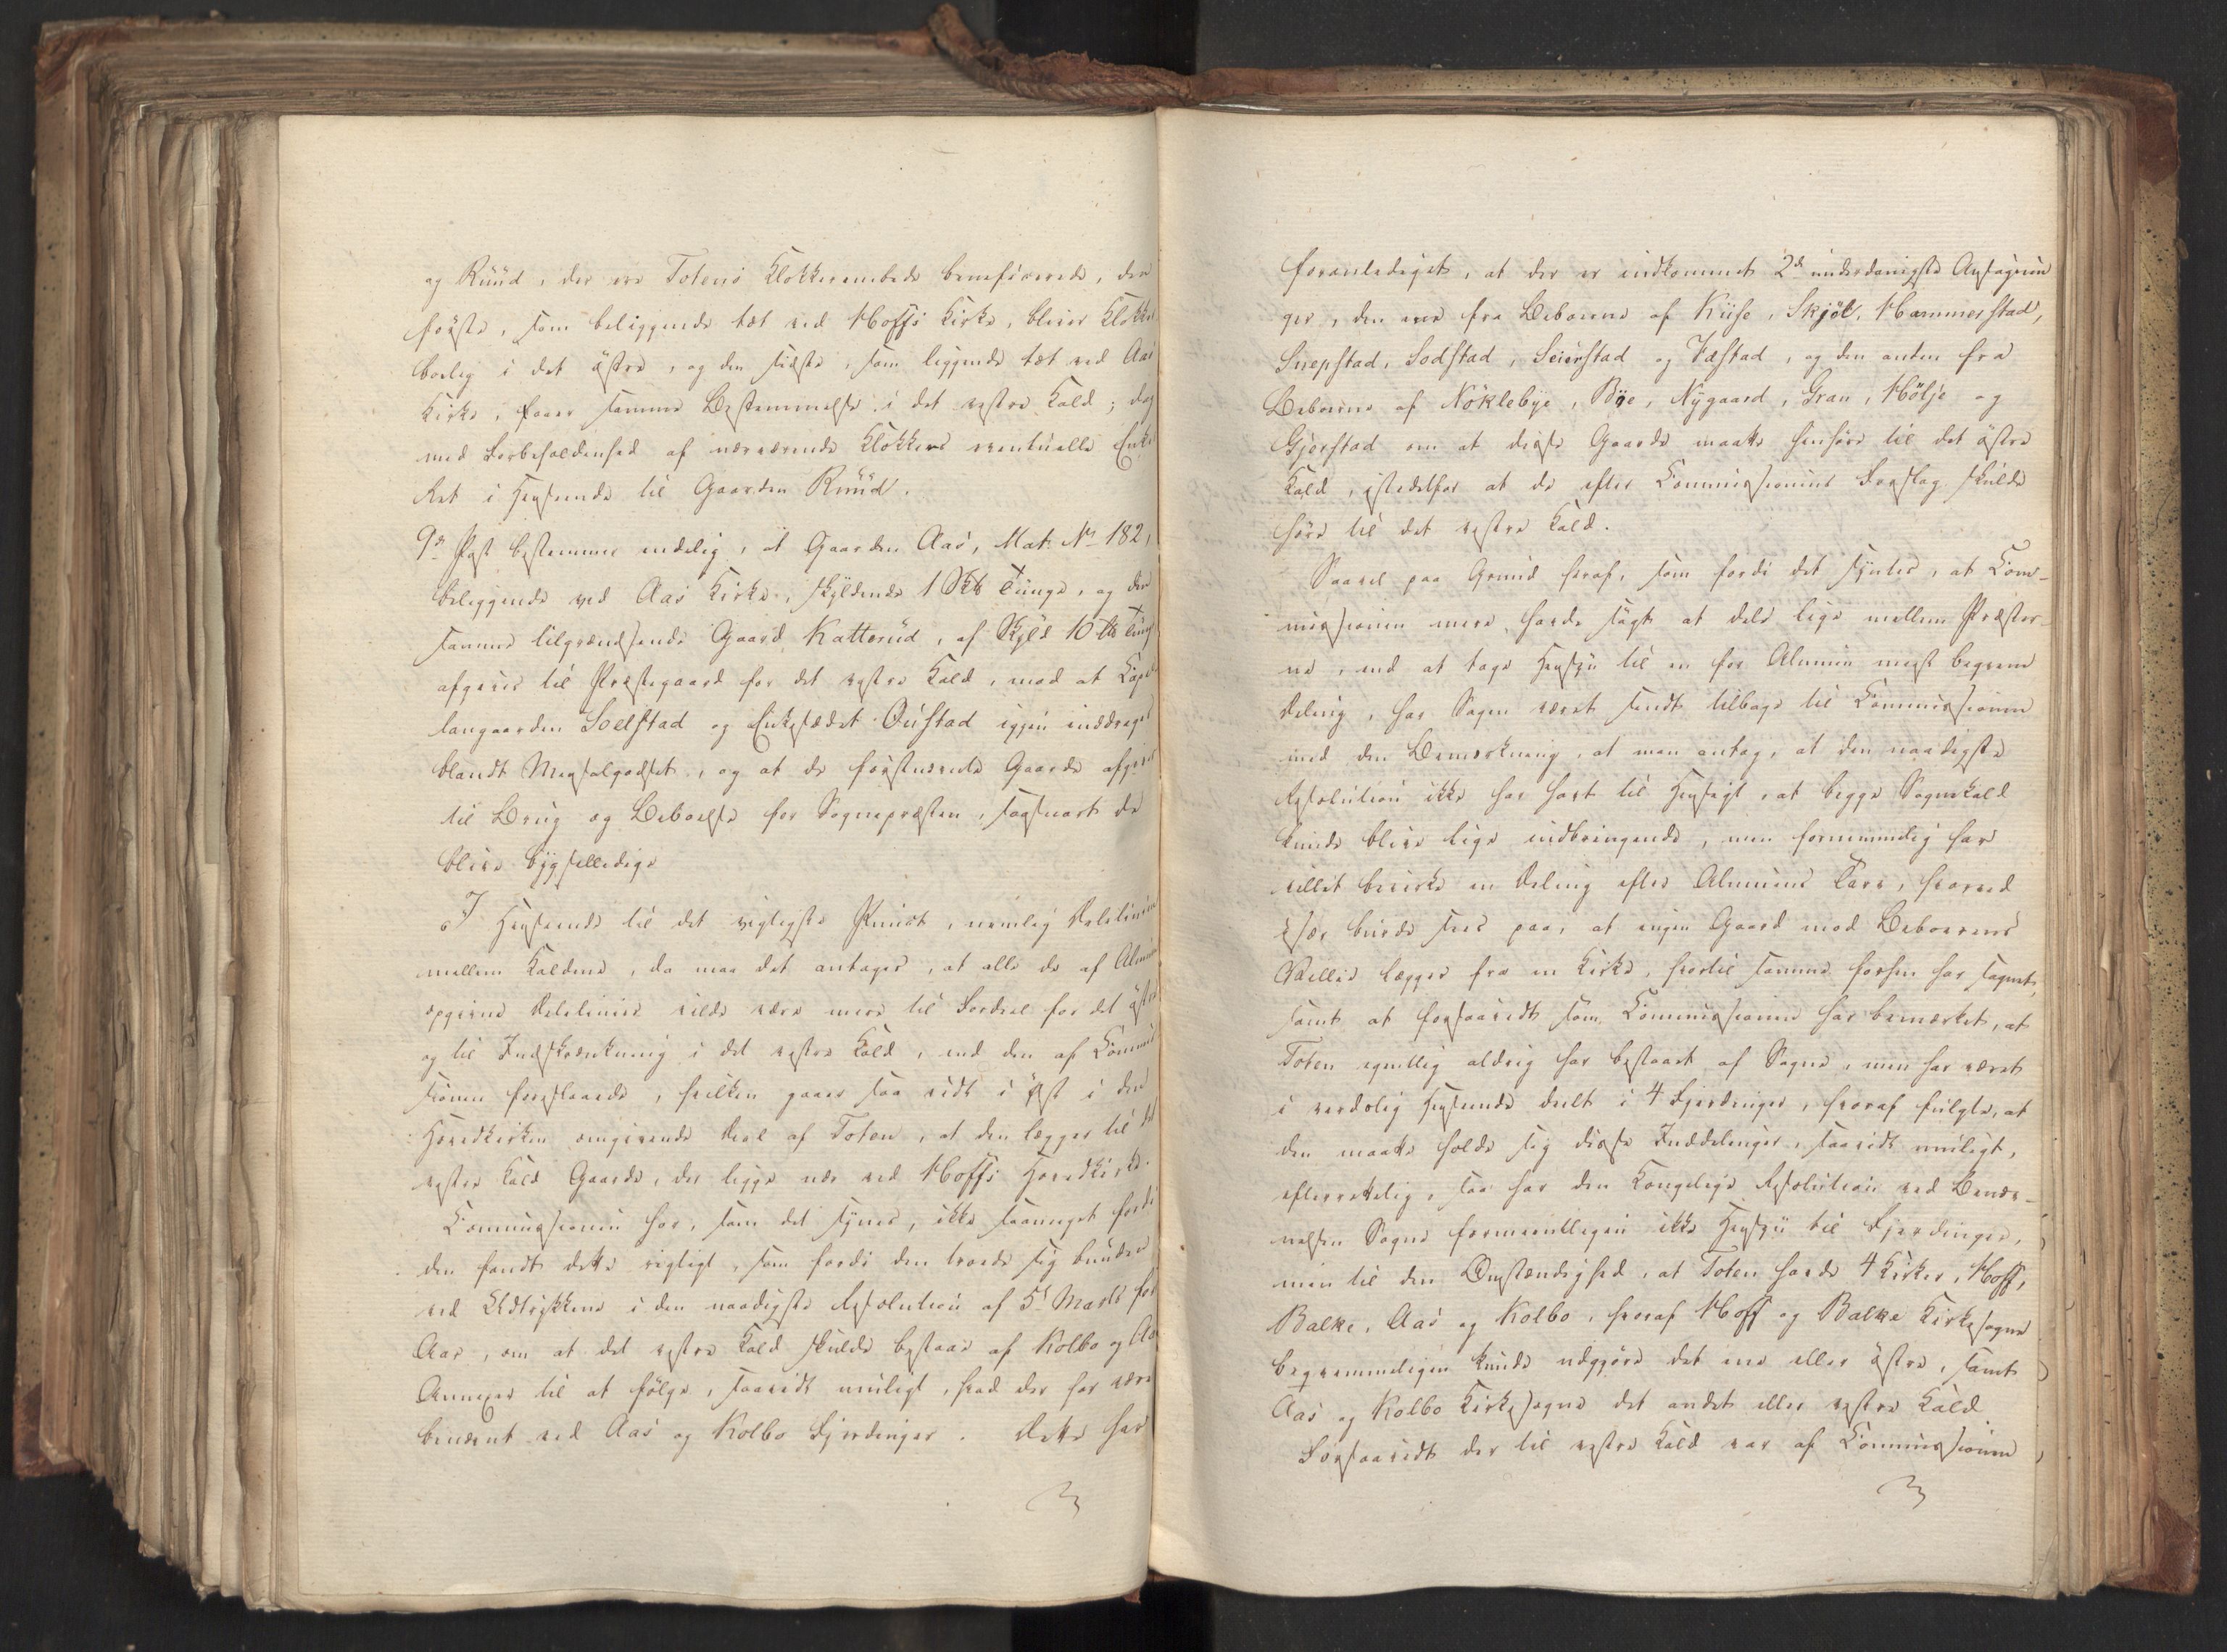 og Ruud, der ere Totens Klokkerembede beneficerede, den
første, som beliggende tæt ved Hoffs Kirke, bliver Klokker
bolig i det østre, og den sidste, som liggende tæt ved Aas
Kirke, faaer samme Bestemmelse i det vestre Kald; dog
med Forbeholdenhed af nærværende Klokkers eventuelle Enke
Ret i Henseende til Gaarden Ruud.
9de Post bestemmer endelig, at Gaarden Aas, Mat: No 182,
beliggende ved Aas Kirke, skyldende 1 Skt Tunge, og den
samme tilgrændsende Gaard Katterud, af Skyld 10 Lt Tung
afgives til Præstegaard for det vestre Kald, mod at Capel
langaarden Soelstad og Enkesædet Oustad igjen inddrages
blandt Mensalgodset, og at de førstnævnte Gaarde afgives
til Brug og Beboelse for Sognepræsten, saasnart de
blive bygselledige
I Henseende til det vigtigste Punct, nemlig Delelinien
mellem Kaldene, da maa det antages, at alle de af Almuen
opgivne Delelinier vilde være mere til Fordeel for det østre
og til Indskrænkning i det vestre Kald, end den af Commis
sionen foreslaaede, hvilken gaaer saa vidt i Øst i den
Hovedkirken omgivende Deel af Toten, at den lægger til det
vestre Kald Gaarde, der ligge nær ved Hoffs Hovedkirke.
Commissionen har, som det synes, ikke saameget fordi
den fandt dette rigtigt, som fordi den troede sig bunden
ved Udtrykkene i den naadigste Resolution af 5t Marts f.
Aar, om at det vestre Kald skulde bestaae af Kolbo og Aas
Annexer til at følge, saavidt muligt, hvad der har været
benævnt ved Aas og Kolbo Fjerdinger. Dette har
foranlediget, at der er indkommet 2de underdanigste Ansøgnin
ger, den ene fra Beboerne af Kiise, Skjøl, Hammerstad,
Snepstad, Sodstad, Seierstad og Fæstad, og den anden fra
Beboerne af Nøklebye, Bye, Nygaard, Gran, Hölje og
Gjørstad om at disse Gaarde maatte henhøre til det østre
Kald, istedetfor at de efter Commissionens Forslag skulde
høre til det vestre Kald.
Saavel paa Grund heraf, som fordi det syntes, at Com-
missionen mere havde søgt at dele lige mellem Præster-
ne, end at tage Hensyn til en for Almuen meest beqvem
Deling, har Sagen været sendt tilbage til Commissionen
med den Bemærkning, at man antog, at den naadigste
Resolution ikke har havt til Hensigt, at begge Sognekald
kunde blive lige indbringende, men formeentlig har
villet bevirke en Deling efter Almuens Tarv, hvorved
især burde sees paa, at ingen Gaard mod Beboerens
Villie lægges fra en Kirke, hvortil samme forhen har søgnet,
samt at forsaavidt som Commissionen har bemærket, at
Toten egentlig aldrig har bestaaet af Sogne, men har været
i verdslig Henseende deelt i 4 Fjerdinger, hvoraf fulgte, at
den maatte holde sig disse Inddelinger, saavidt muligt,
efterrettelig, saa har den Kongelige Resolution ved Benæv-
nelsen Sogne formeentligen ikke Hensyn til Fjerdinger,
men til den Omstændighed, at Toten havde 4 Kirker, Hoff,
Balke, Aas og Kolbo, hvoraf Hoff og Balke Kirkesogne
beqvemmeligen kunde udgjøre det ene eller østre, samt
Aas og Kolbo Kirkesogne det andet eller vestre Kald
Forsaavidt der til vestre Kald var af Commissionen